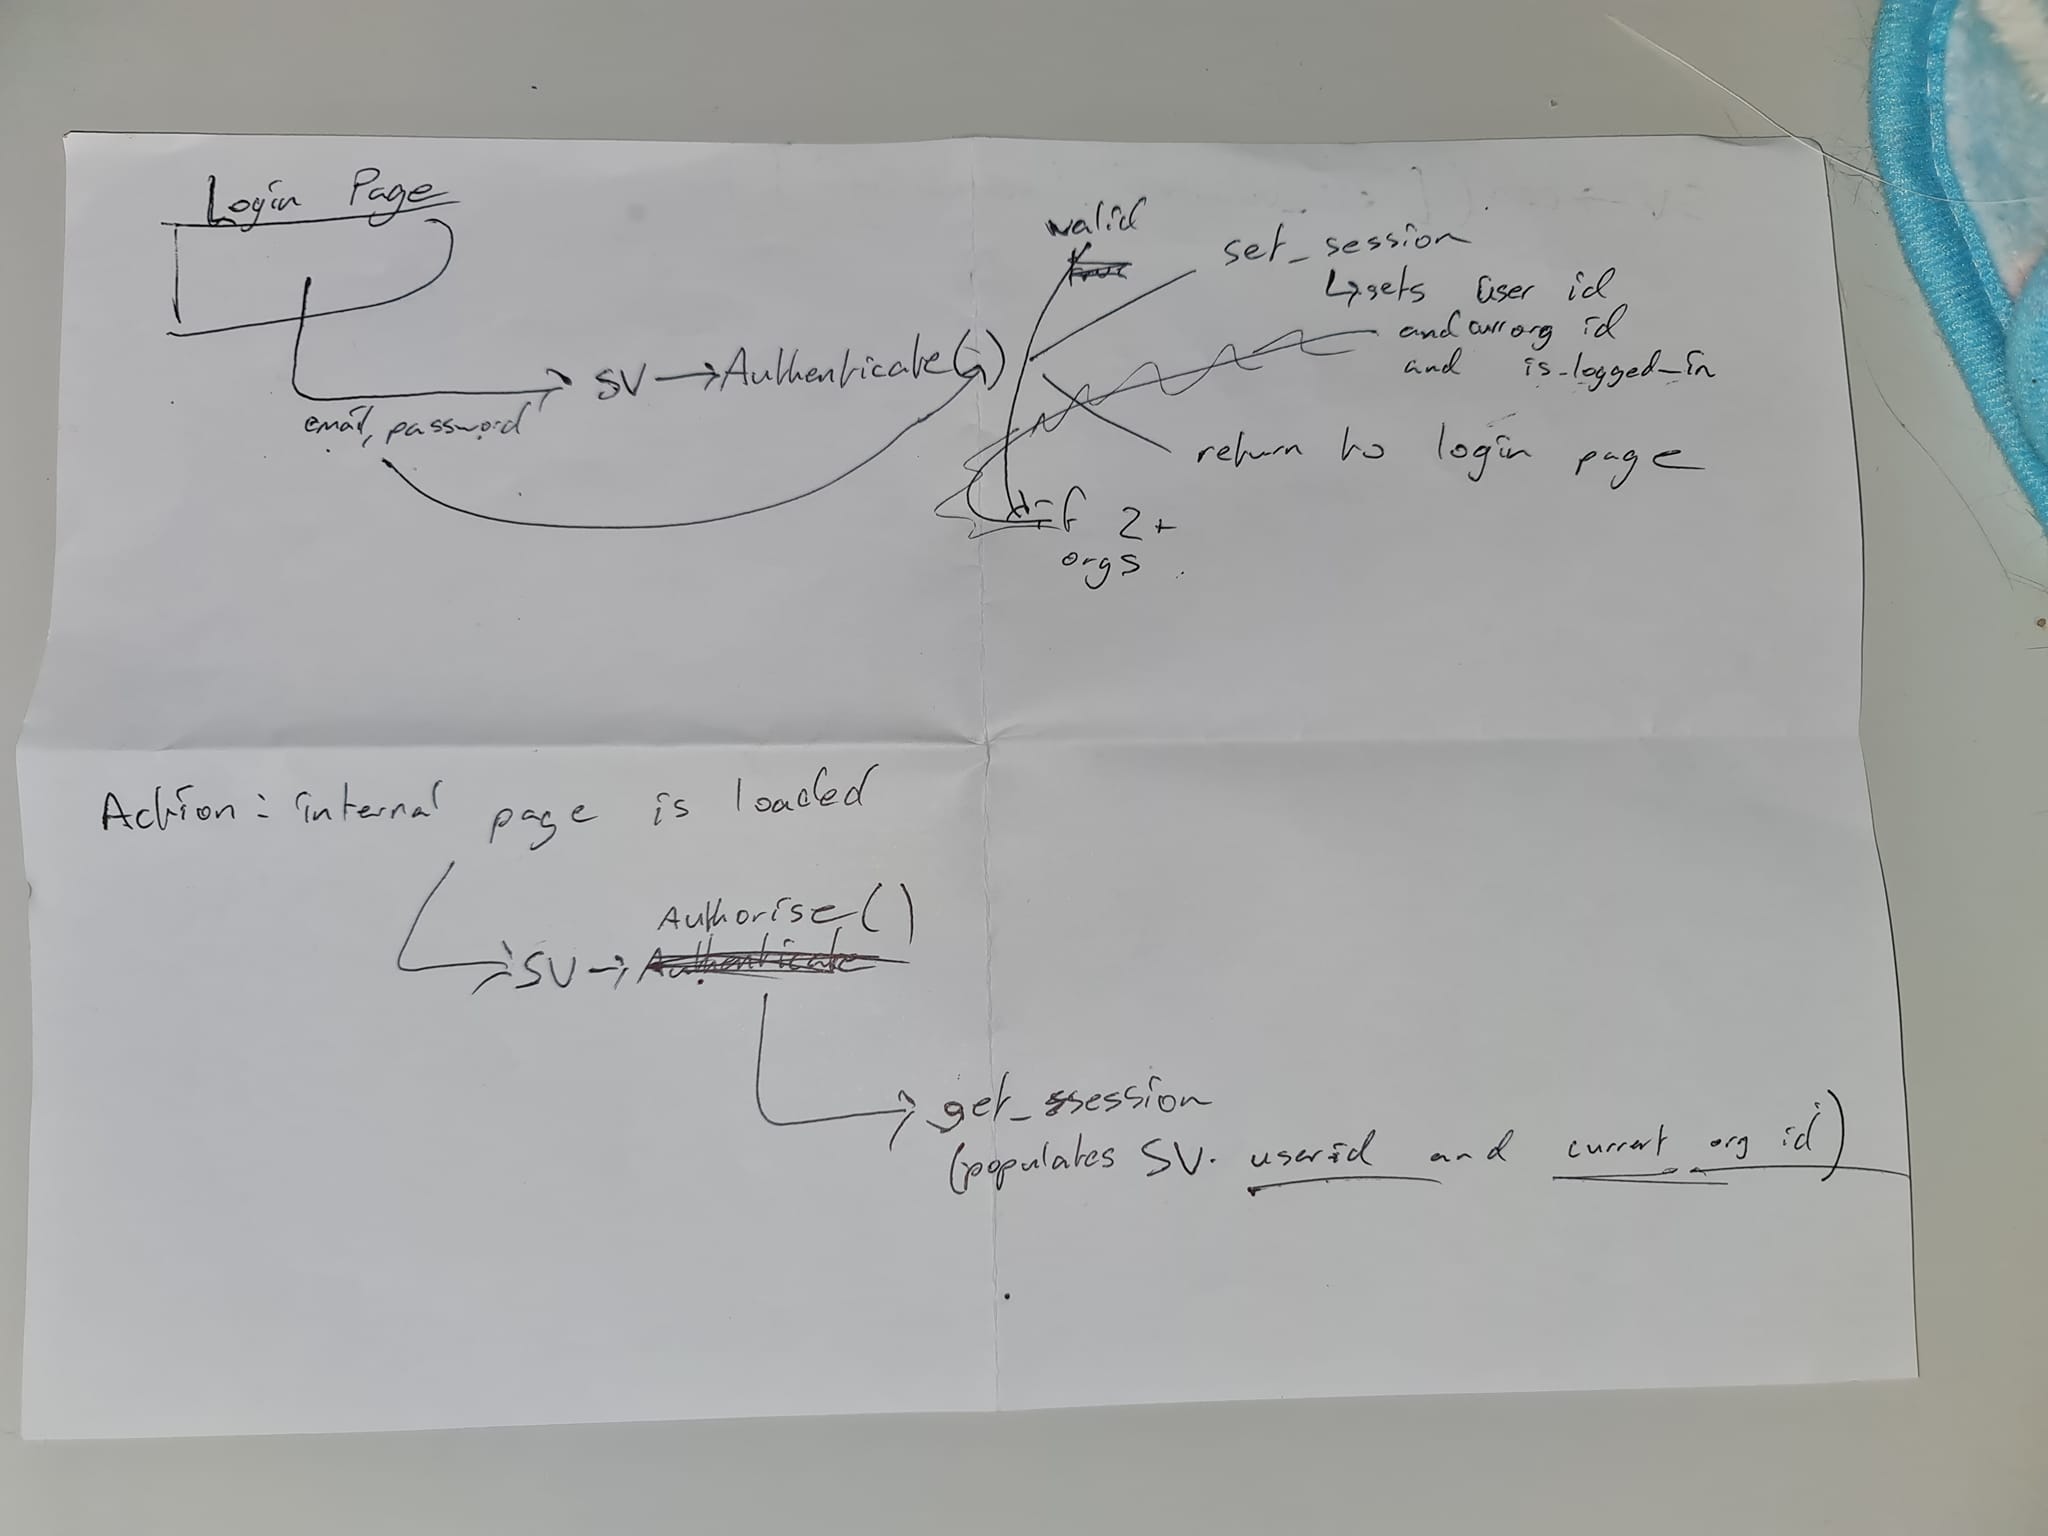 Login Page
email, password
SV → Authenticate( , )
valid
set_session
↳ sets user id
and curr org id
and is_logged_in
return to login page
if 2+
orgs
Action: internal page is loaded
SV → Authorise()
Authenticate
get_session
(populates SV. userid and current org id)